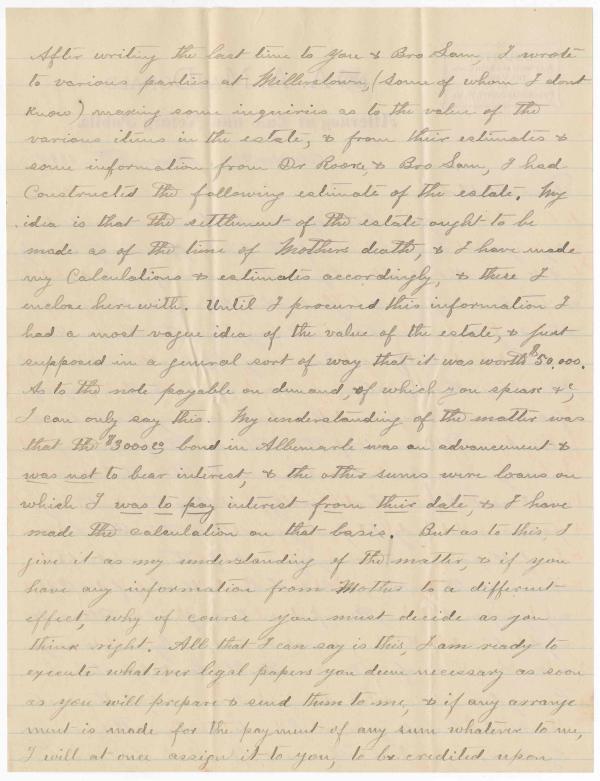 After writing the last time to you & Bro Sam, I wrote
to various parties at Millerstown, (some of whom I dont
know) making some inquiries as to the value of the
various items in the estate, & from their estimates &
some information from Dr Roore, & Bro Sam, I had
Constructed the following estimate of the estate. My
idea is that the settlement of the estate ought to be
made as of the time of Mothers death, & I have made
my Calculations & estimates accordingly, & these I
enclose herewith. Until I procured this information I
had a most vague idea of the value of the estate, & just
supposed in a general sort of way that it was worth $50,000.
As to the note payable on demand, of which you speak &c,
I can only say this. My understanding of the matter was
that the $3000 bond in Albemarle was an advancement &
was not to bear interest, & the other sums were loans on
which I was to pay interest from their date, & I have
made the calculation on that basis. But as to this, I
give it as my understanding of the matter, & if you
have any information from Mother to a different
effect, why of course you must decide as you
think right. All that I can say is this, I am ready to
execute whatever legal papers you deem necessary as soon
as you will prepare & send them to me, & if any arrange
ment is made for the payment of any sum whatever to me,
I will at once assign it to you, to be credited upon